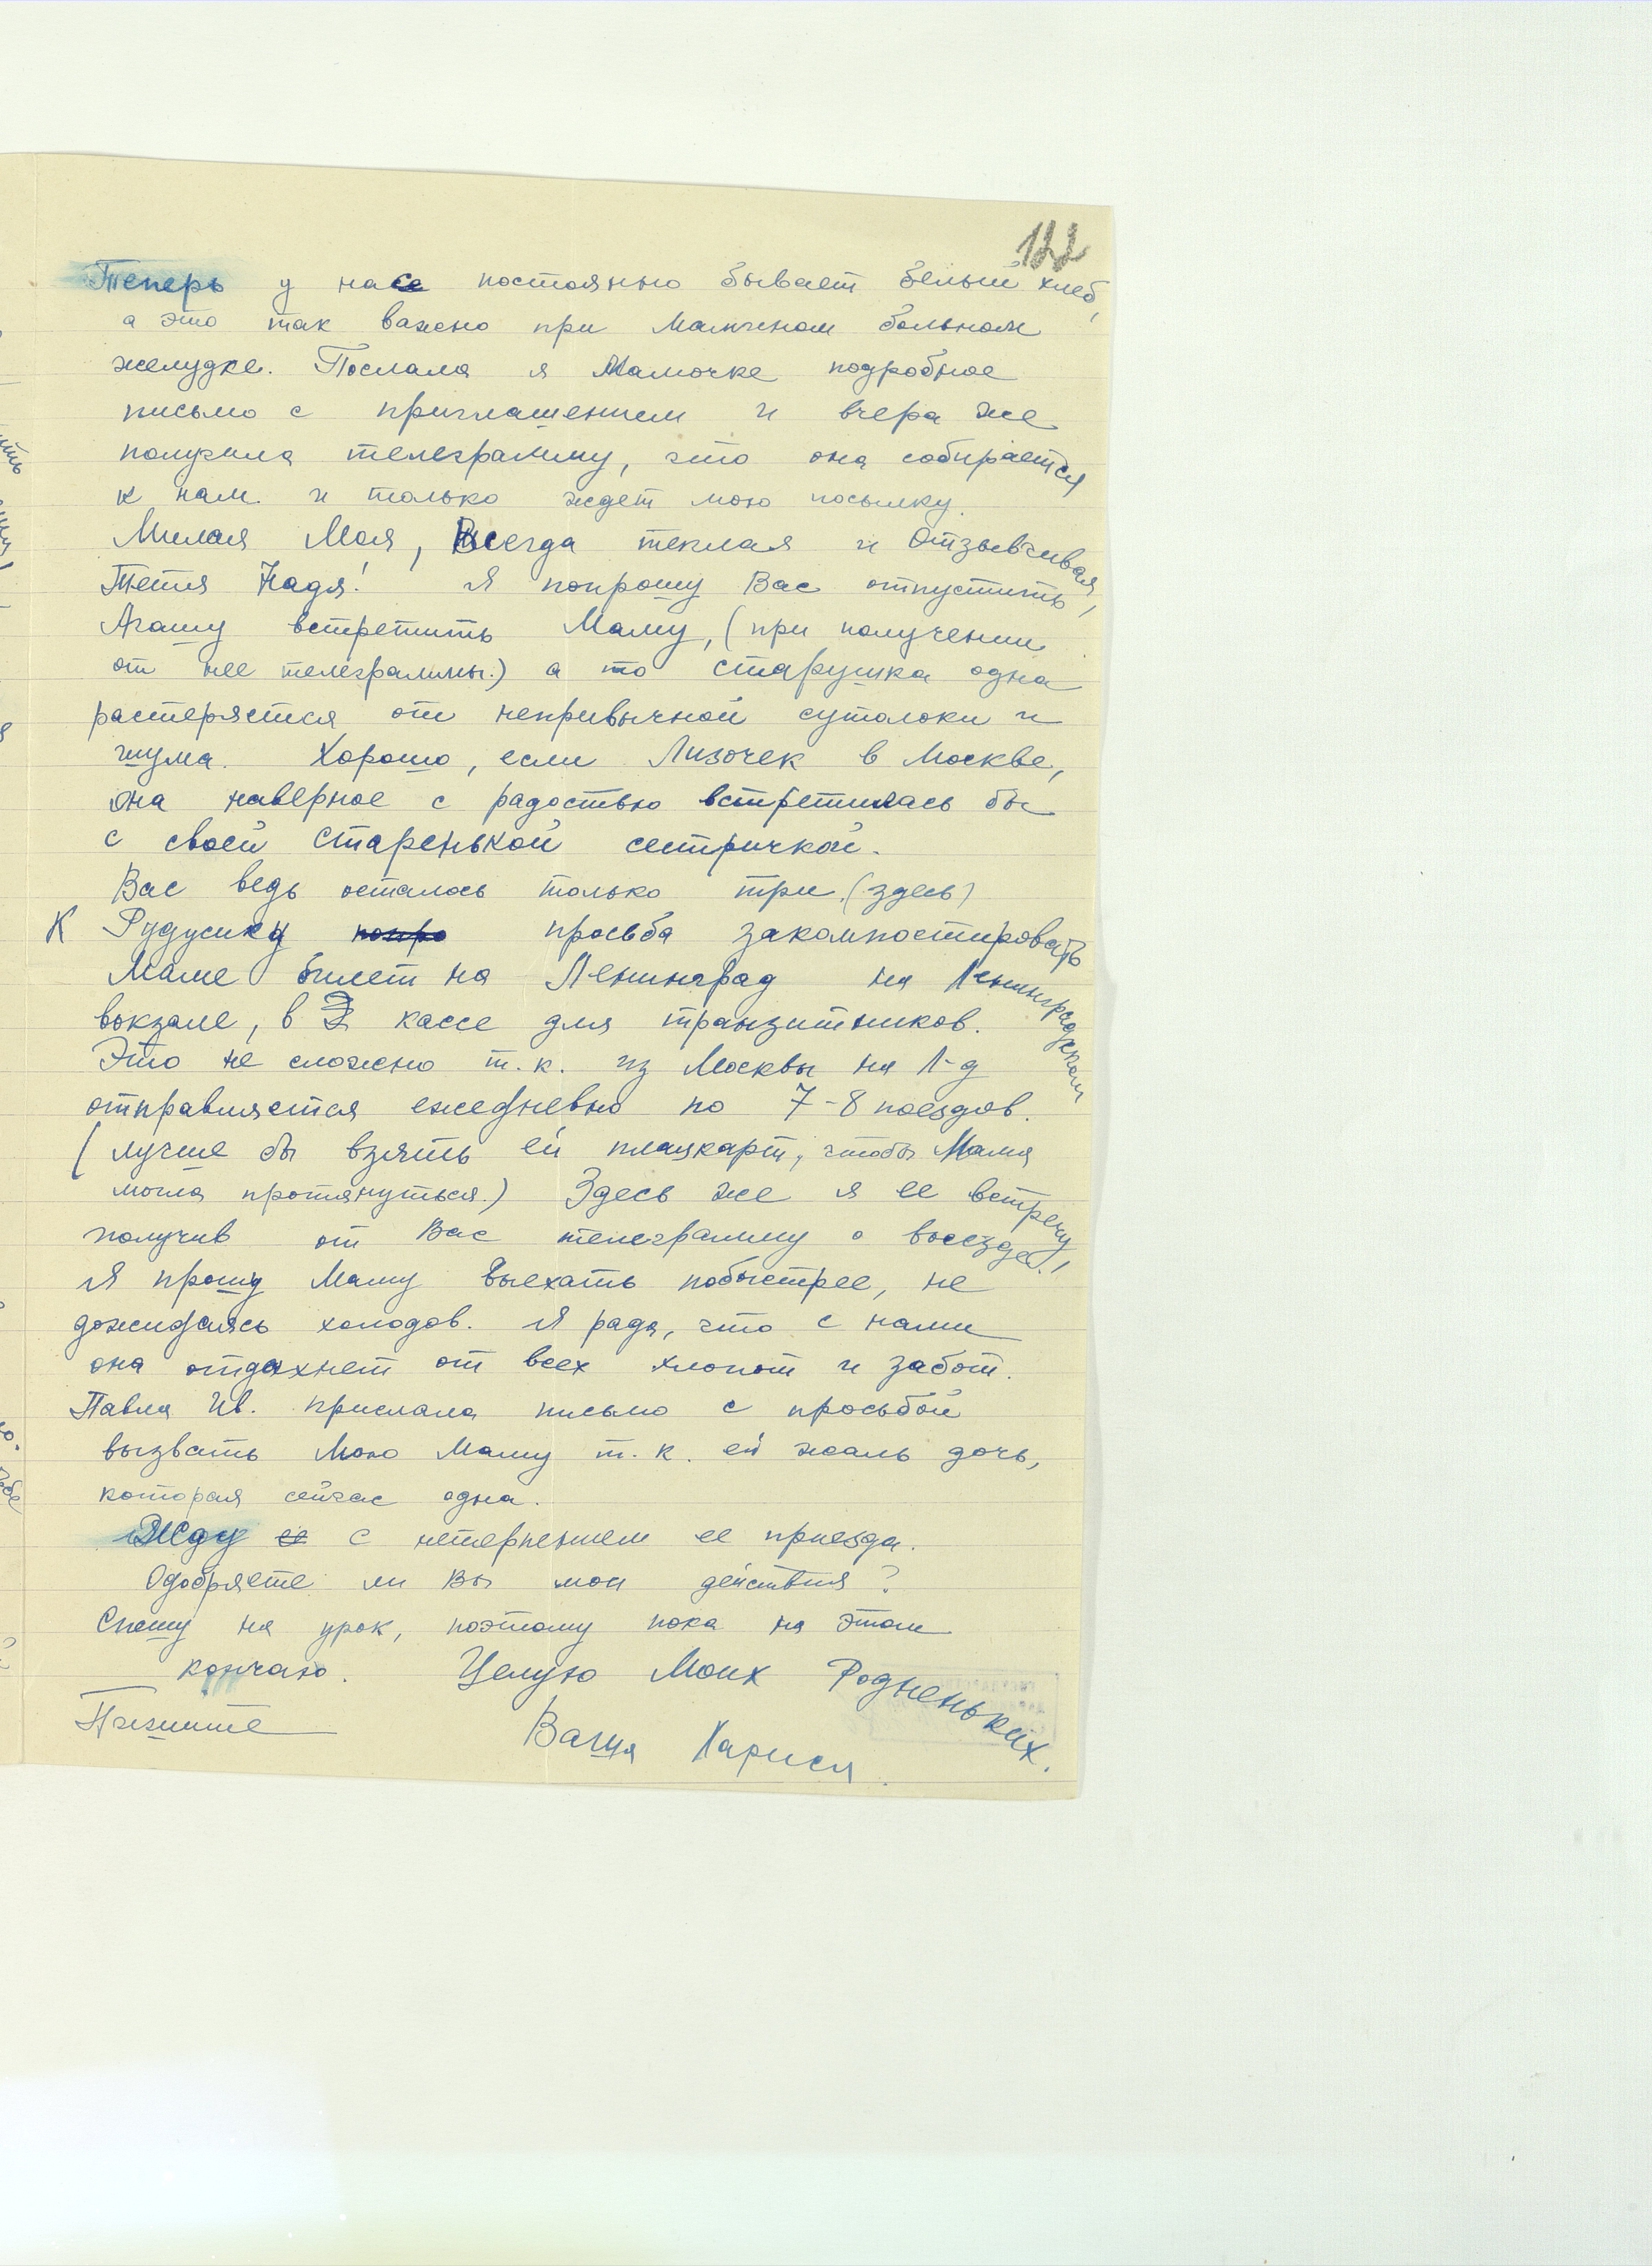 122
Теперь у нас постоянно бывает белый хлеб,
а это так важно при Мамином больном
желудке. Послала я Мамочке подробное
письмо с приглашением и вчера же
получила телеграмму, что она собирается
к нам и только ждет мою посылку.
Милая Моя, Всегда теплая и Отзывчивая,
Тетя Надя! Я попрошу Вас отпустить
Агашу встретить Маму, (при получении
от нее телеграммы.) а то старушка одна
растеряется от непривычной сутолоки и
шума. Хорошо, если Лизочек в Москве,
она наверное с радостью встретилась бы
с своей Старенькой сестричкой.
Вас ведь осталось только три (здесь)
К Рудусику попро просьба закомпостировать
Маме билет на Ленинград на Ленинградском
вокзале, в кассе для транзитников.
Это не сложно т.к. из Москвы на Л-д
отправляется ежедневно по 7-8 поездов.
(лучше бы взять ей плацкарт, чтобы Мама
могла протянуться.) Здесь же я ее встречу
получив от Вас телеграмму о выезде!
Я прошу Маму выехать побыстрее, не
дожидаясь холодов. Я рада, что с нами
она отдахнет от всех хлопот и забот.
Павла Ив. прислала письмо с просьбой
вызвать Мою Маму т.к. ей жаль дочь,
которая сейчас одна.
Жду ее с нетерпением ее приезда.
Одобряете ли Вы мои действия?
Спешу на урок, поэтому пока на этом
кончаю. Целую Моих Родненьких.
Пишите
Ваша Лариса.